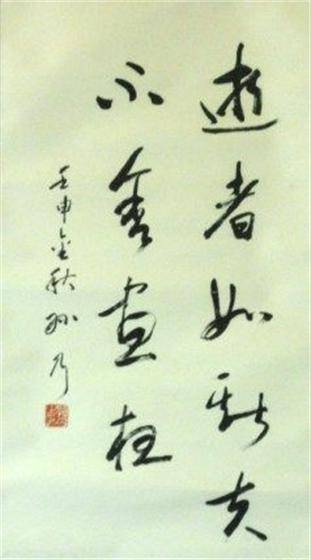 逝者如斯夫
不舍昼夜
壬申金秋 孙乃